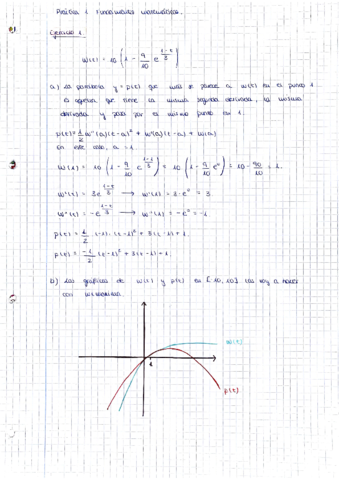 Práctica 1 Fundamentos matemáticos.
Ejercicio 1.
w(t) = 10 ( 1 - 9/10 e^((1-t)/3) )
a) La parábola y = p(t) que más se parece a w(t) en el punto 1
es aquella que tiene la misma segunda derivada, la misma
derivada y pasa por el mismo punto en 1.
p(t) = 1/2 w''(a)(t-a)² + w'(a)(t-a) + w(a)
En este caso, a = 1.
w(1) = 10 ( 1 - 9/10 e^((1-1)/3) ) = 10 ( 1 - 9/10 e⁰ ) = 10 - 90/10 = 1.
w'(t) = 3e^((1-t)/3) → w'(1) = 3·e⁰ = 3
w''(t) = -e^((1-t)/3) → w''(1) = -e⁰ = -1
p(t) = 1/2 (-1)·(t-1)² + 3(t-1)+1
p(t) = -1/2 (t-1)² + 3(t-1)+1
b) Las gráficas de w(t) y p(t) en [10,10] las voy a hacer
con
w(t)
1
p(t)